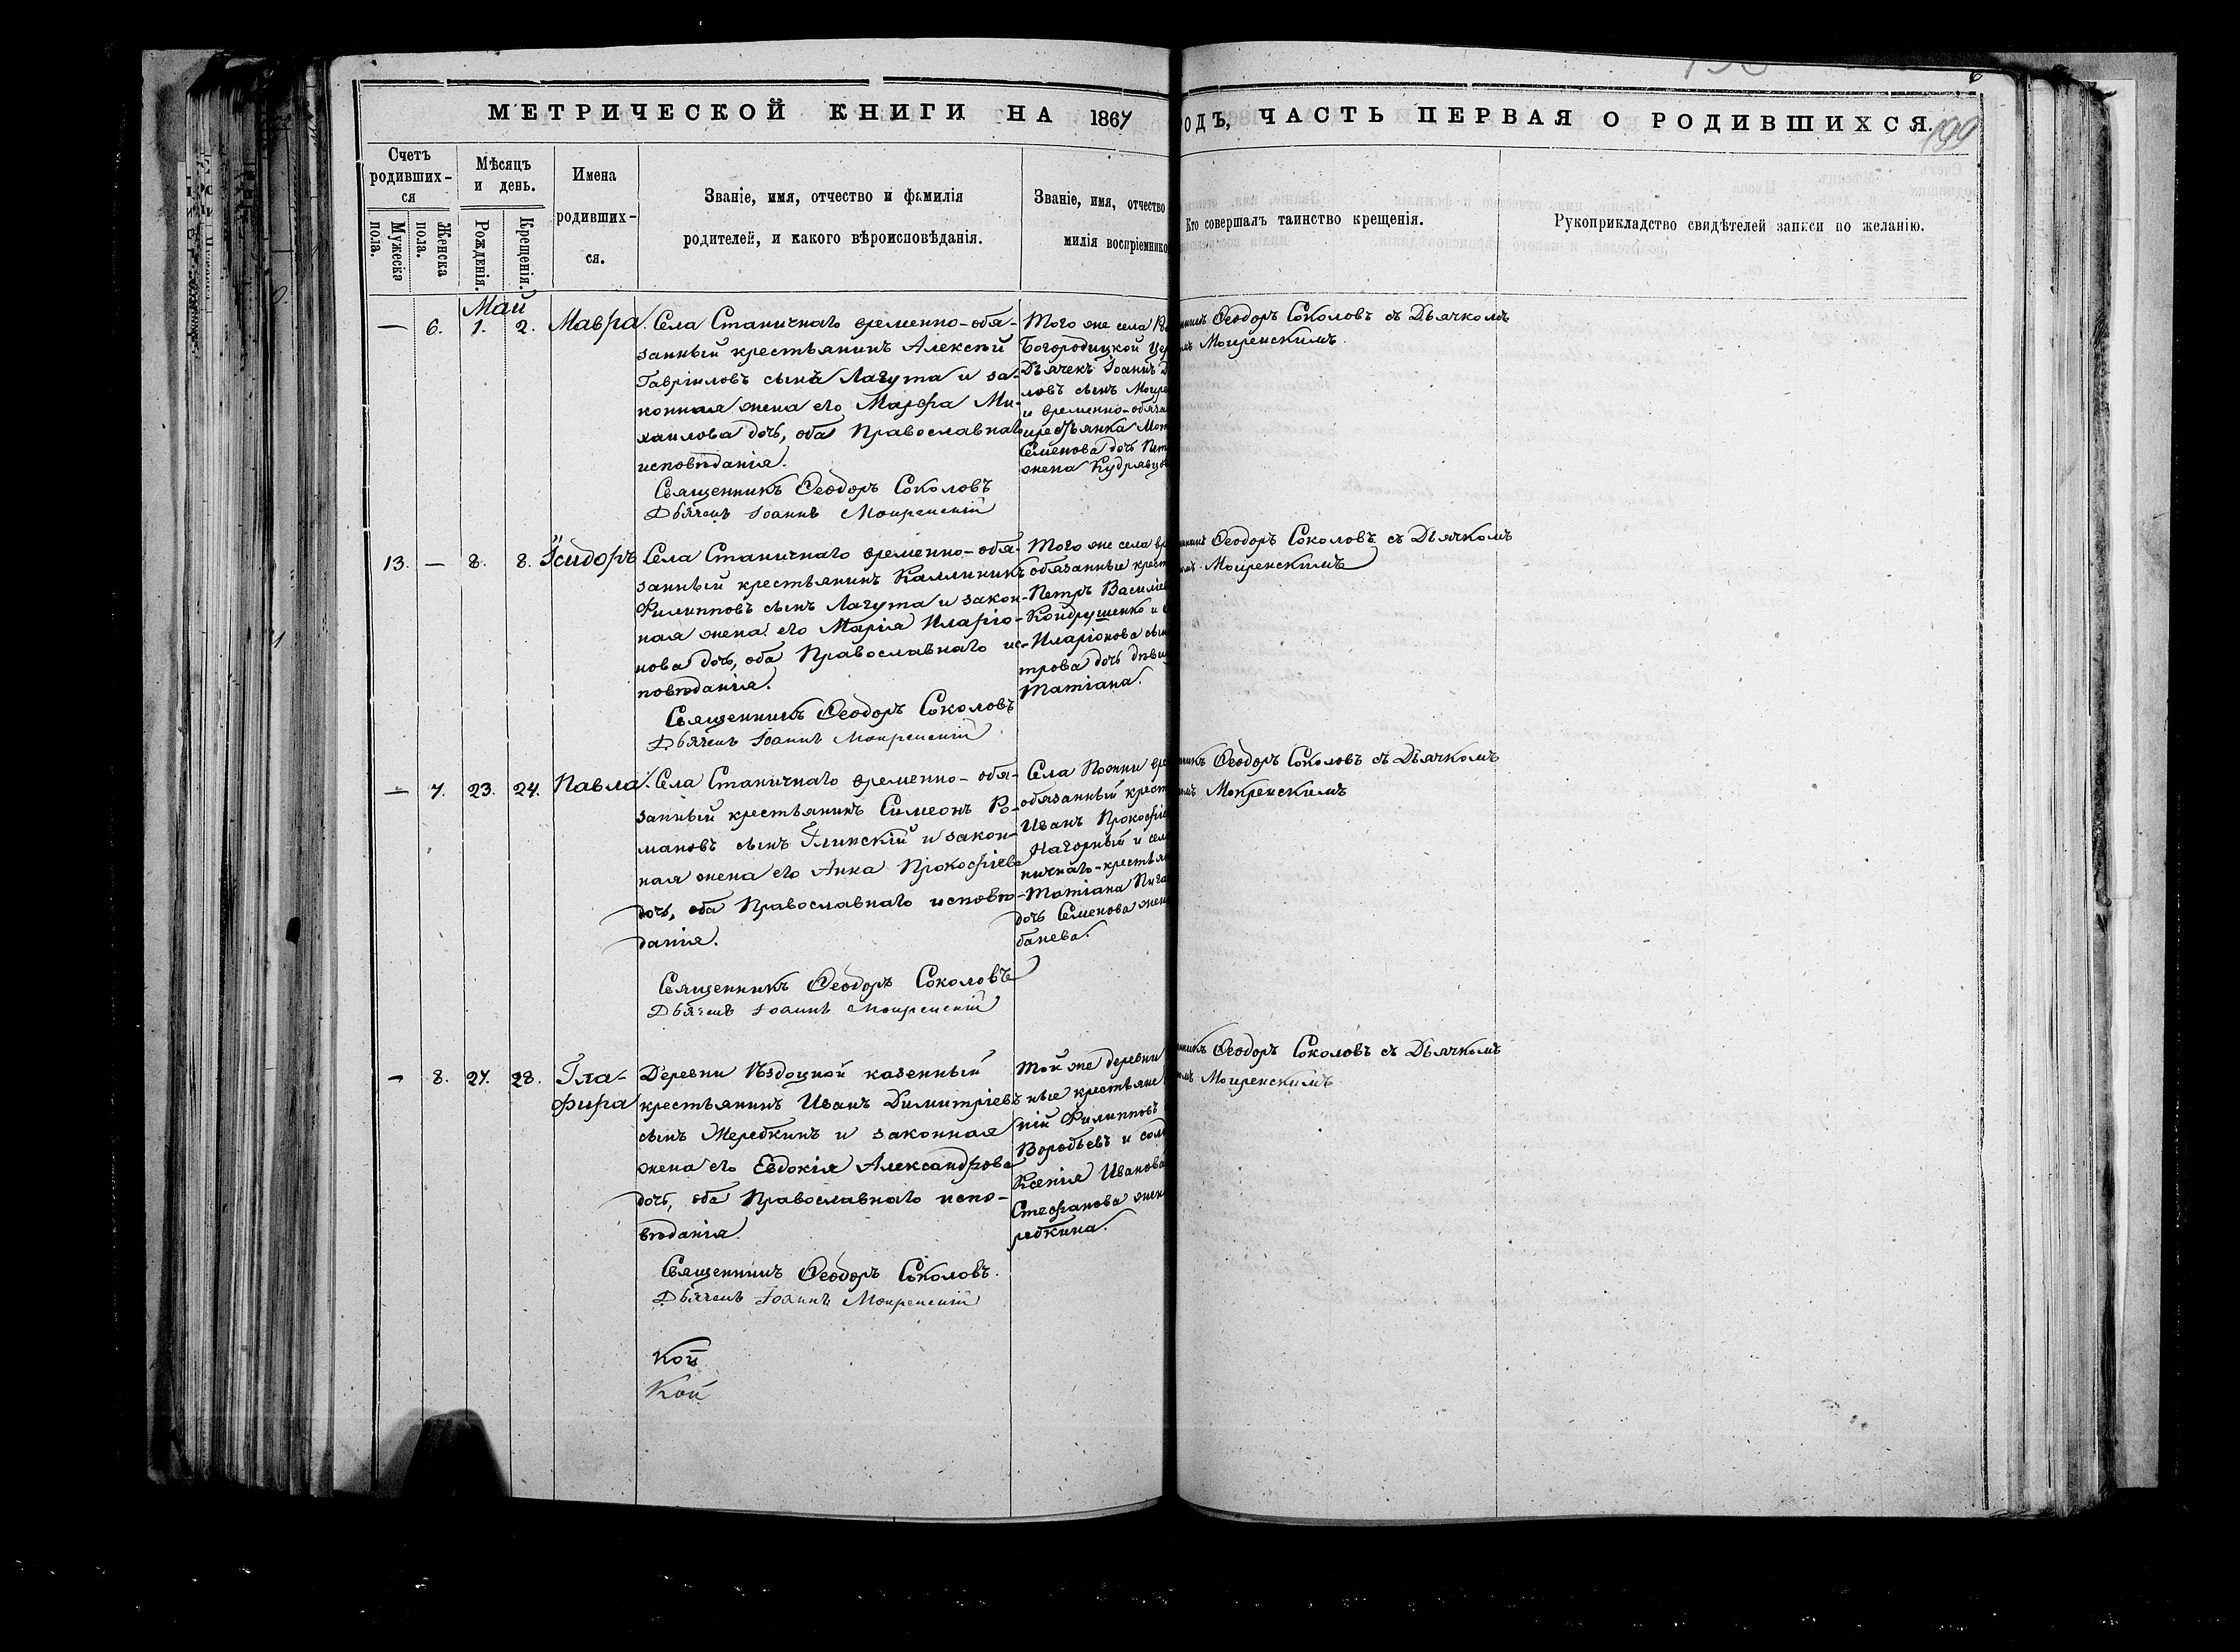 МЕТРИЧЕСКОЙ КНИГИ НА 1867
ОДЪ, ЧАСТЬ ПЕРВАЯ О РОДИВШИХСЯ.
199
Счетъ родивших-ся
Мужеска пола.
Женска пола.
Мѣсяцъ и день.
Рожденія.
Крещенія.
Имена родивших-ся.
Званіе, имя, отчество и фамилія
родителей, и какого вѣроисповѣданія.
Званіе, имя, отчество
милія воспріемнико
Кто совершалъ таинство крещенія.
Рукоприкладство свидѣтелей записи по желанію.
Май
— 6. 1. 2. Мавра
Села Станичнаго временно-обя-
занный крестьянинъ Алексѣй
Гавріиловъ сынъ Лагута и за-
конная жена его Марѳа Ми-
хаилова дочь, оба Православнаго
исповѣданія.
Священникъ Ѳеодоръ Соколовъ
Дьячекъ Іоаннъ Мокренскій
Того же села
Богородицкой
Дьячекъ Іоаннъ
ловъ сынъ
и временно-обяза
Семенова дочь
жена
Ѳеодоръ Соколовъ съ Дьячкомъ
Мокренскимъ.
13. — 8. 8. Ісидоръ
Села Станичнаго временно-обя-
занный крестьянинъ Каллиникъ
Филипповъ сынъ Лагута и закон-
ная жена его Марія Иларіо-
нова дочь, оба Православнаго ис-
повѣданія.
Священникъ Ѳеодоръ Соколовъ
Дьячекъ Іоаннъ Мокренскій
Того же села
обязанные крест
Петръ Василіе
Кондрушенко и
Иларіонова
трова дочь дѣви
Татіана.
Ѳеодоръ Соколовъ съ Дьячкомъ
Мокренскимъ
— 7. 23. 24. Павла
Села Станичнаго временно-обя-
занный крестьянинъ Симеонъ Ро-
мановъ сынъ Глинскій и закон-
ная жена его Анна Прокофіева
дочь, оба Православнаго исповѣ-
данія.
Священникъ Ѳеодоръ Соколовъ
Дьячекъ Іоаннъ Мокренскій
Села
обязанный крест
Иванъ Прокофіе
Нагорный и
ничнаго-крестья
Татіана
дочь Семенова жен
банева.
Ѳеодоръ Соколовъ съ Дьячкомъ
Мокренскимъ
— 8. 27. 28. Гла-
фира
Деревни Ѣздоцкой казенный
крестьянинъ Иванъ Димитріевъ
сынъ Жеребкинъ и законная
жена его Евдокія Александрова
дочь, оба Православнаго испо-
вѣданія.
Священникъ Ѳеодоръ Соколовъ.
Дьячекъ Іоаннъ Мокренскій
Той же деревни
ные крестьяне
ній Филипповъ
Воробьевъ и сол
Ксенія Иванова
Стефанова жен
ребкина.
Ѳеодоръ Соколовъ съ Дьячкомъ
Мокренскимъ